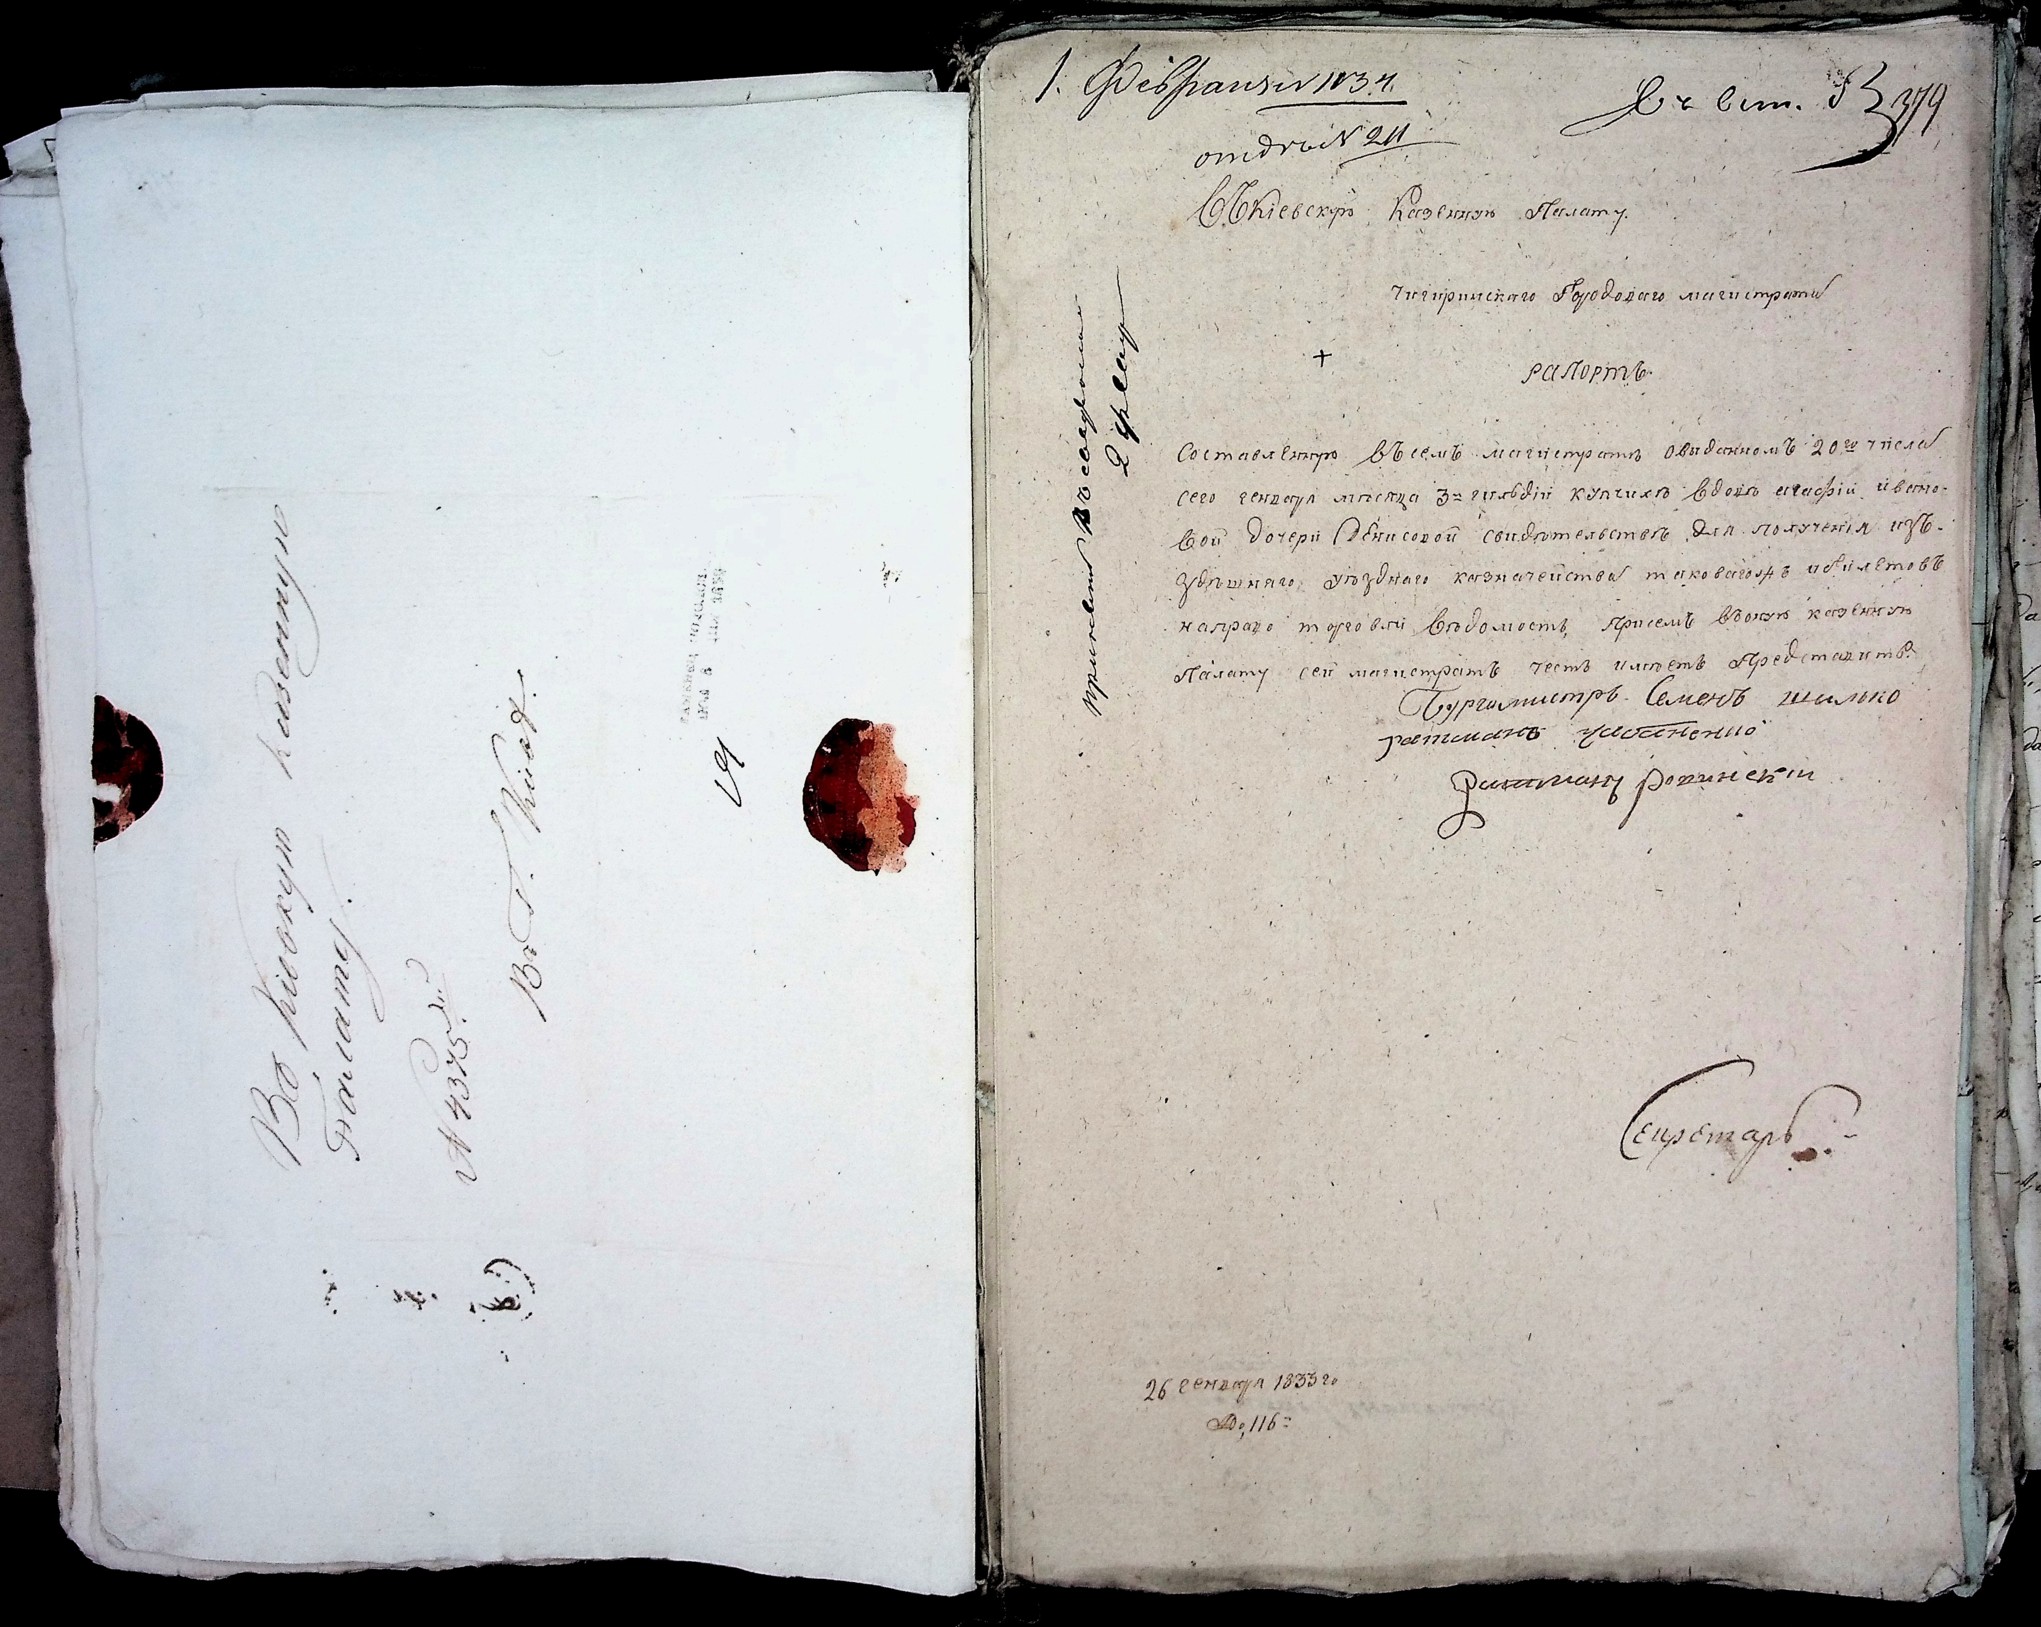 Въ Кіевскую казенную
Палату.
N 4375
Въ Г. Кіевъ.
1. Февраля 1834.
N 211
379
Въ Кіевскую Казенную Палату.
Чигиринского Городового магистрата
рапортъ.
Составленную въ семъ магистратѣ овыданномъ 20го числа
сего генваря месяца 3й гильдіи купчихѣ вдовѣ агафіи ивано-
вой дочери Денисовой свидѣтельствѣ для полученія изъ-
здѣшняго уѣзднаго казначейства таковагожъ ибилетовъ
направо торговли вѣдомость, присемъ воную казенную
Палату сей магистратъ честь имѣетъ Представить.
Бургомистръ Семенъ
ратманъ
Ратманъ
Секретарь
26 генваря 1833го
No, 116